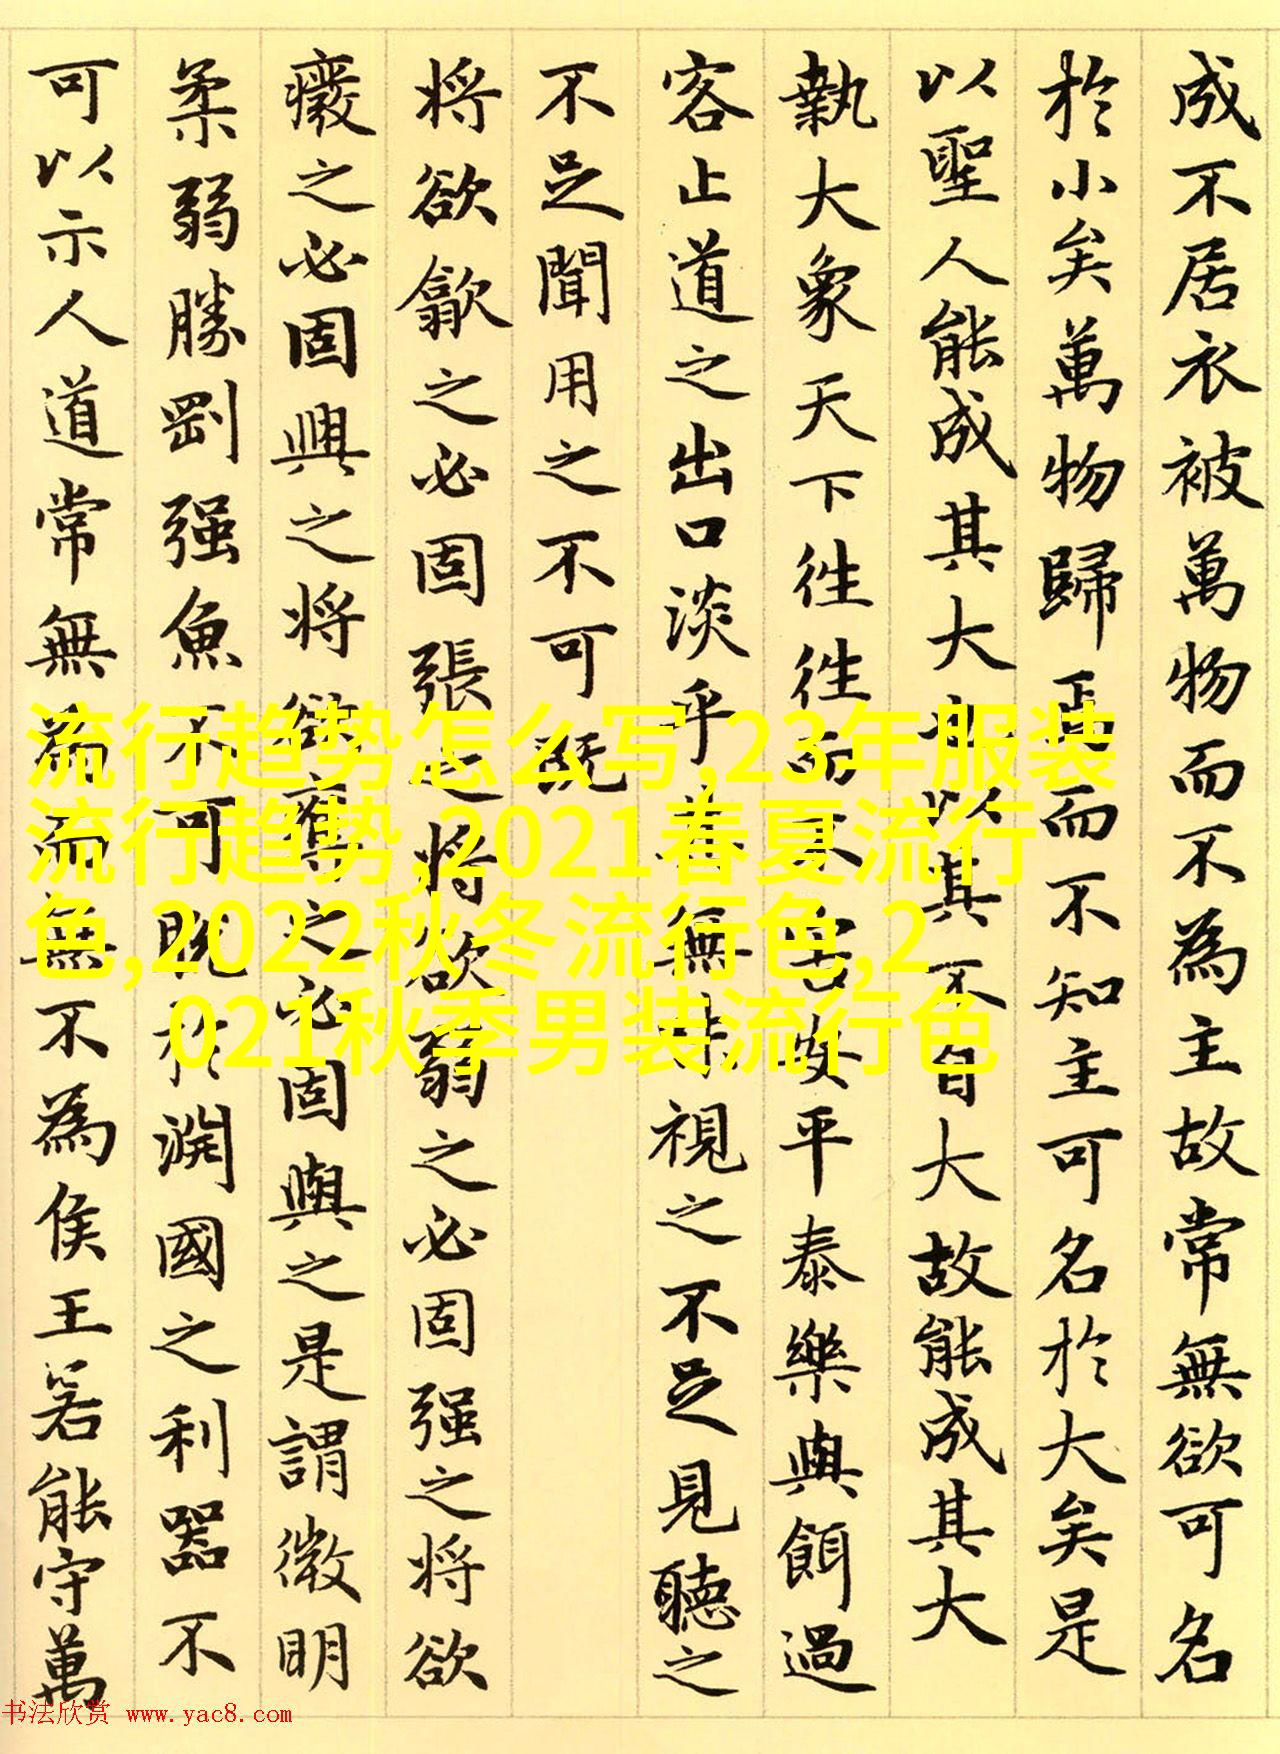 成不居衣被萬物而不為主故常無欲可名
於小矣萬物歸焉而不知主可名於大矣是
以聖人能成其大也以其不自大故能成其大
執大象天下往往而不害安平泰樂與餌過
客止道之出口淡乎其無味視之不足見聽之
不足聞用之不可既
将欲歙之必固張之将欲弱之必固强之将欲
癈之必固興之将欲奪之必固與之是謂微明
柔弱勝剛强魚不可脫於淵國之利器不
可以示人道常無為而無不為侯王若能守萬
流行趋势怎么写,23年服装
流行趋势,2021春夏流行
色,2022秋冬流行色,2
021秋季男装流行色
书法欣赏 www.yac8.com